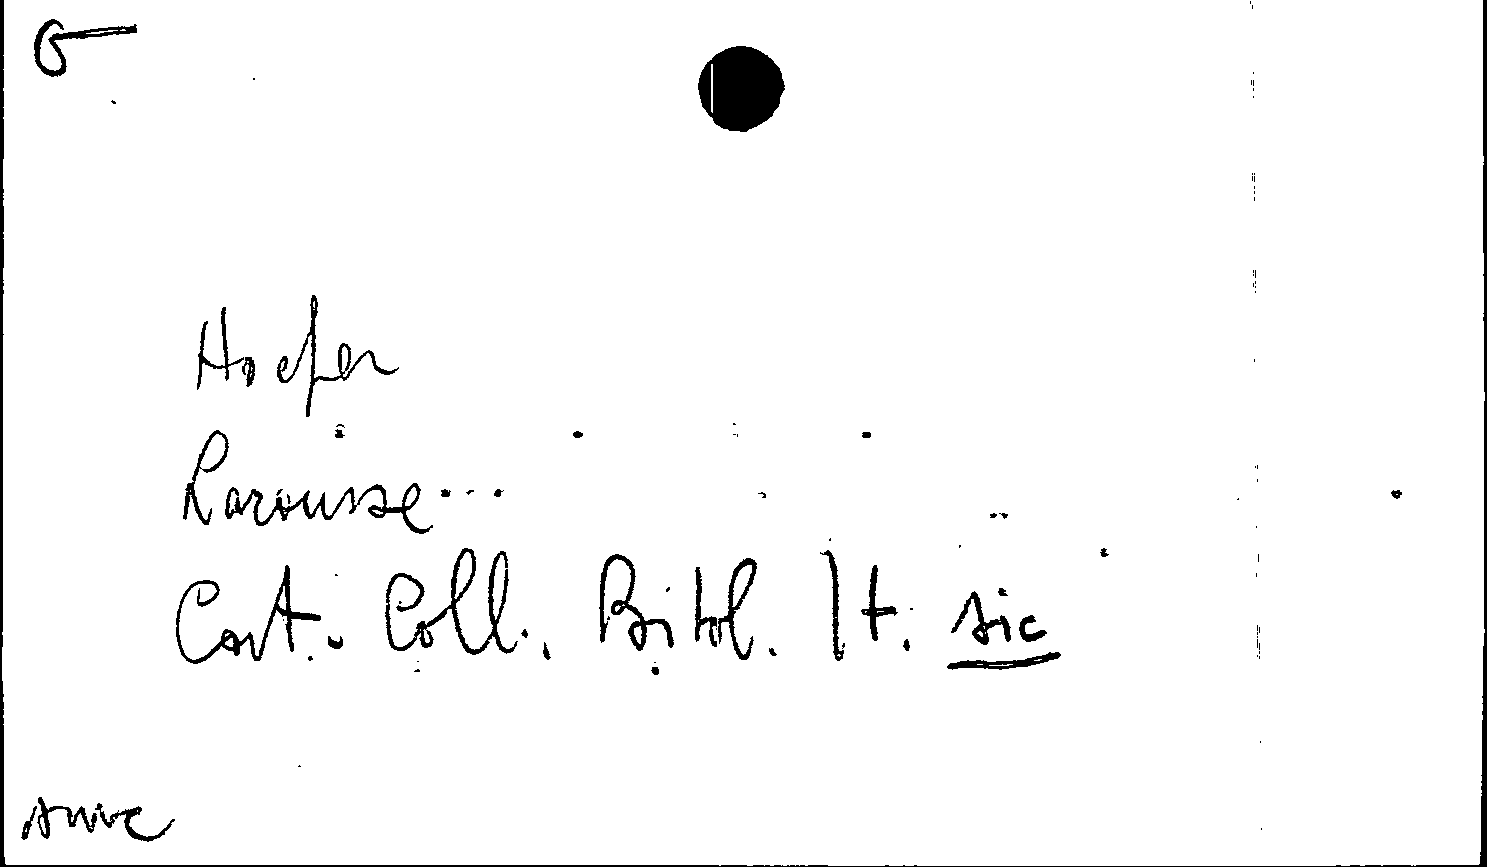 Hoefer
Larousse...
Cat. Coll. Bibl. It. sic